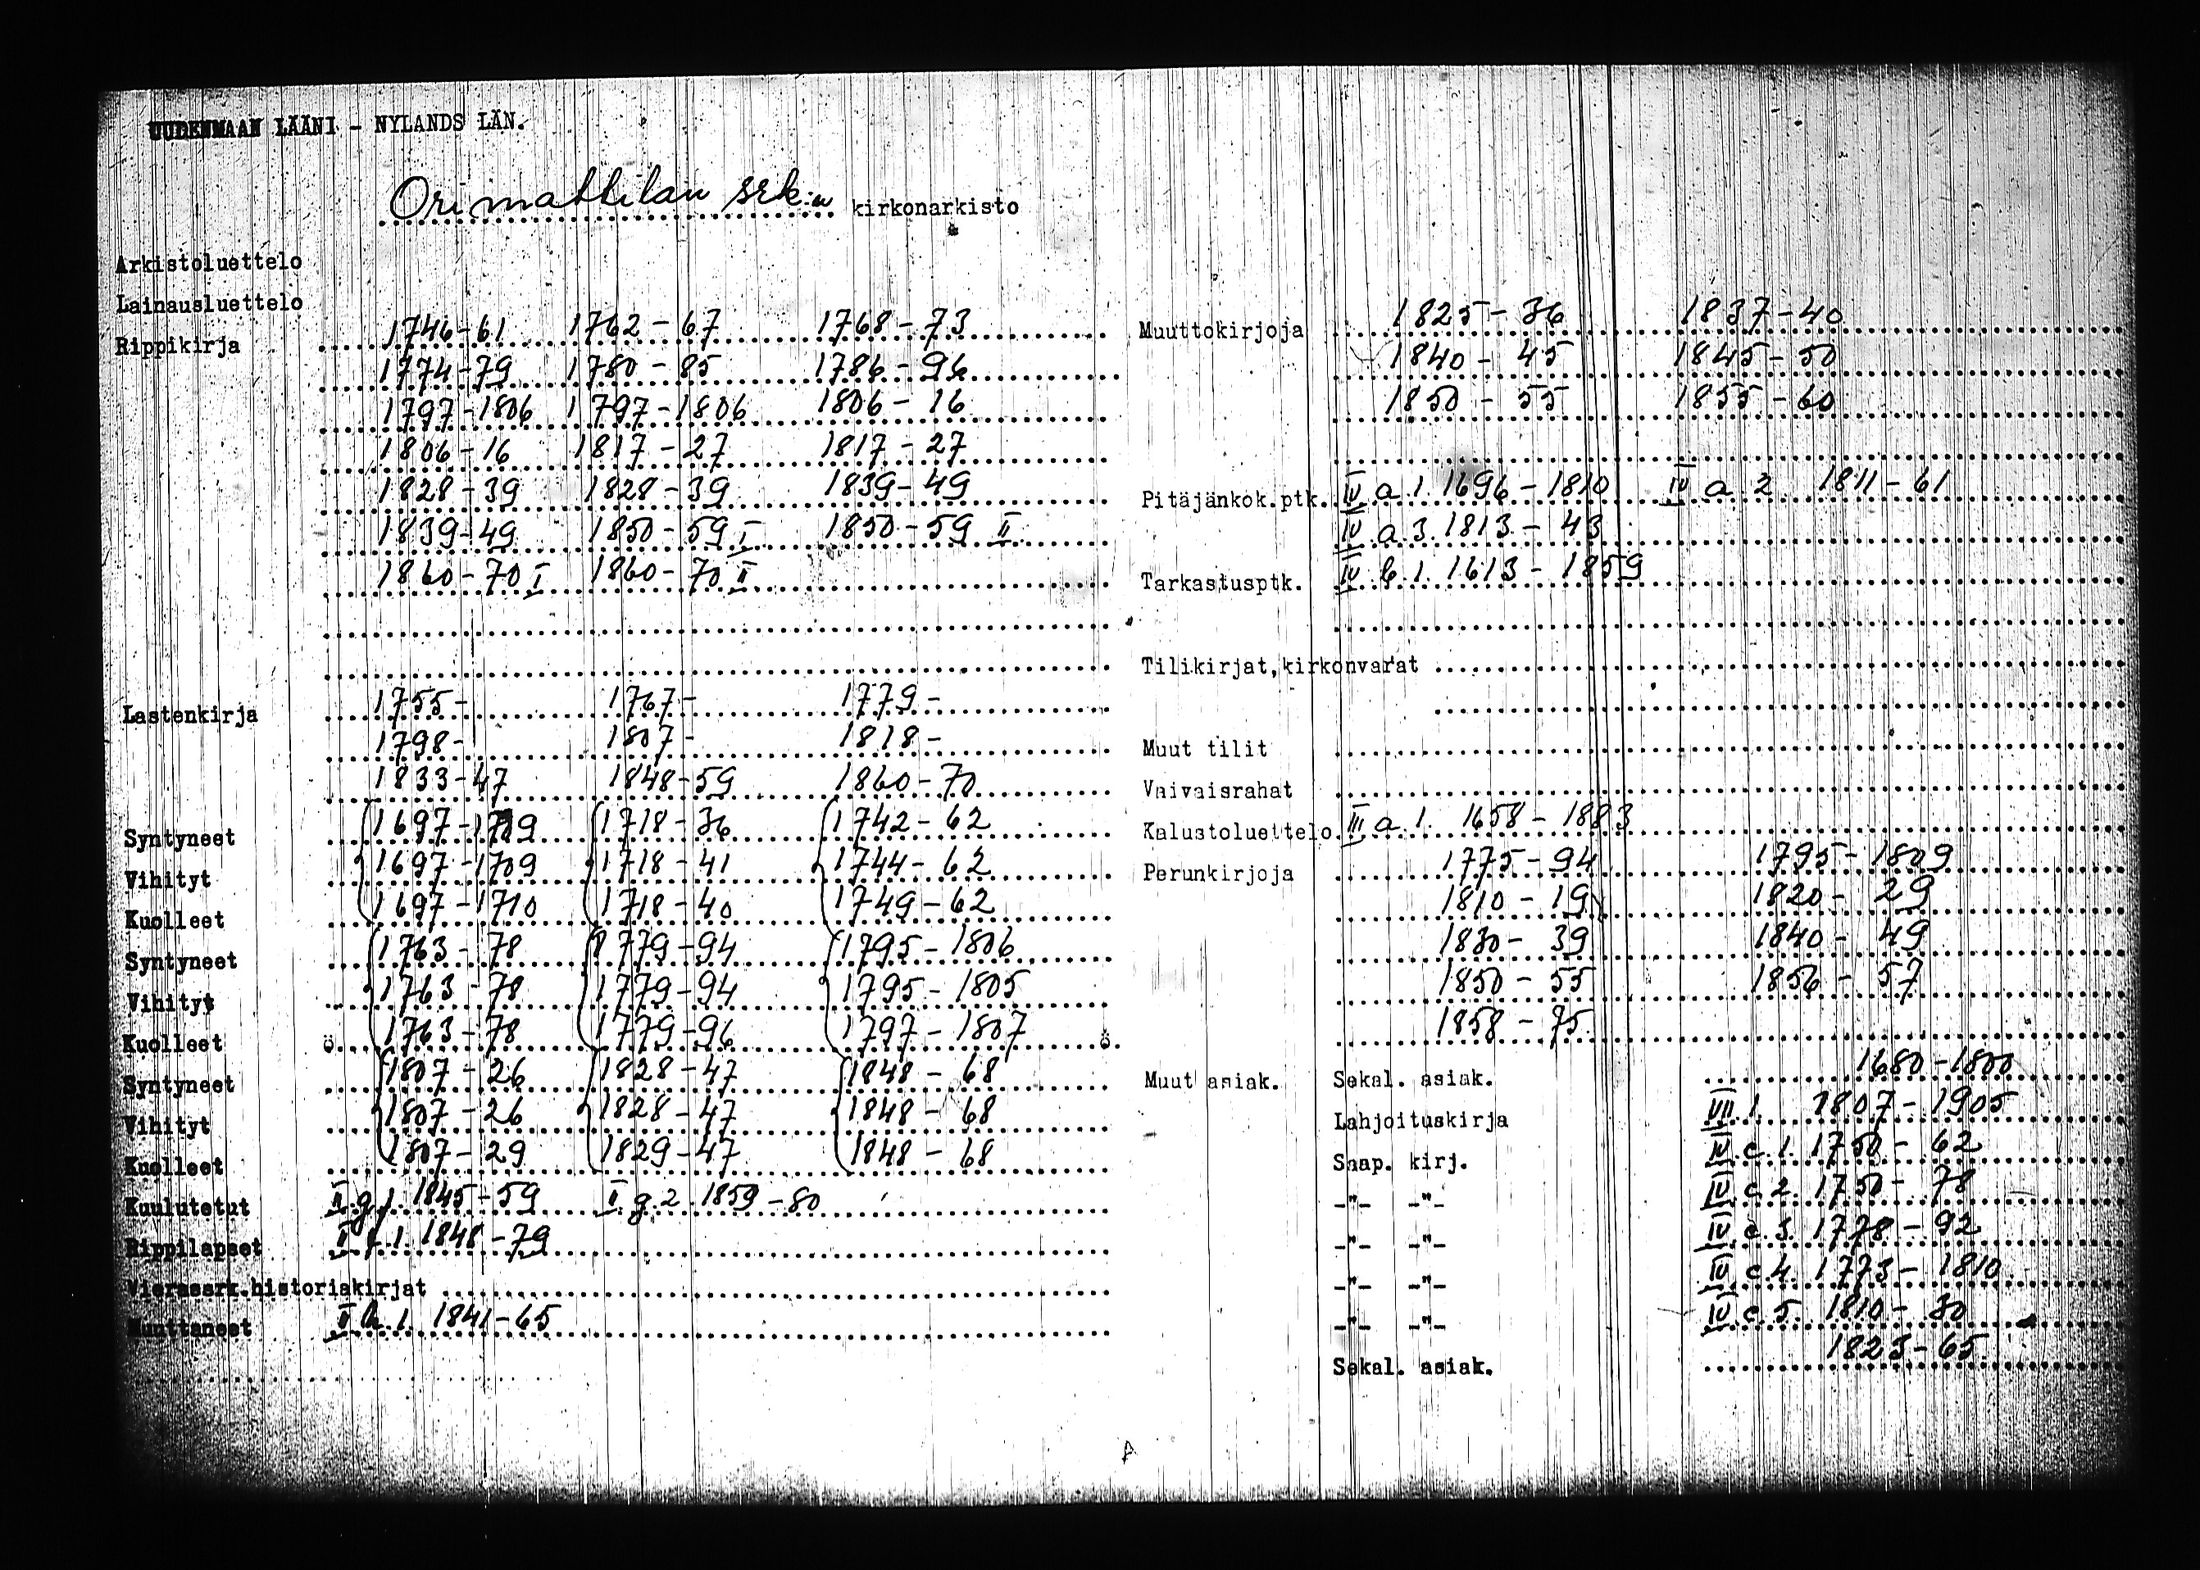 UUDENMAAN LÄÄNI - NYLANDS LÄN.
Orimattilan srk:n kirkonarkisto
Arkistoluettelo
Lainausluettelo
Rippikirja 1746-61 1762-67 1768-73
1774-79 1780-85 1786-96
1797-1806 1797-1806 1806-16
1806-16 1817-27 1817-27
1828-39 1828-39 1839-49
1839-49 1850-59 I 1850-59 II
1860-70 I 1860-70 II
Lastenkirja 1755- 1767- 1779-
1798- 1807- 1818-
1833-47 1848-59 1860-70
Syntyneet 1697-1709 1718-36 1742-62
Vihityt 1697-1709 1718-41 1744-62
Kuolleet 1697-1710 1718-40 1749-62
Syntyneet 1763-78 1779-94 1795-1806
Vihityt 1763-78 1779-94 1795-1805
Kuolleet 1763-78 1779-96 1797-1807
Syntyneet 1807-26 1828-47 1848-68
Vihityt 1807-26 1828-47 1848-68
Kuolleet 1807-29 1829-47 1848-68
Kuulutetut II g 1. 1845-59 II g 2. 1859-80
Rippilapset II f 1. 1848-79
Vierassrk.historiakirjat
Muuttaneet II h 1. 1841-65
Muuttokirjoja 1825-36 1837-40
1840-45 1845-50
1850-55 1855-60
Pitäjänkok.ptk. IV a 1. 1696-1810 IV a 2. 1811-61
IV a 3. 1813-43
Tarkastusptk. IV b 1. 1613-1859
Tilikirjat,kirkonvarat
Muut tilit
Vaivaisrahat
Kalustoluettelo III a 1. 1658-1883
Perunkirjoja 1775-94 1795-1809
1810-19 1820-29
1830-39 1840-49
1850-55 1856-57
1858-75
Muut asiak. Sekal. asiak. 1680-1800
Lahjoituskirja VII 1. 1807-1905
Saap. kirj. IV c 1. 1750-62
-"- -"- IV c 2. 1750-78
-"- -"- IV c 3. 1778-92
-"- -"- IV c 4. 1773-1810
-"- -"- IV c 5. 1810-30
Sekal. asiak. 1823-65